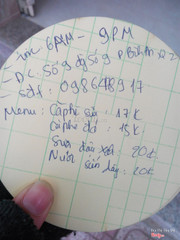 6AM - 9PM
- Đ/c Số 9 đg Số 9 P Bình An Q2
- Sđt : 098648917
Menu : Cà phê sữa : 17K
Cà phê đá : 15K
Sữa đậu : 20K
Nước sâm : 20K